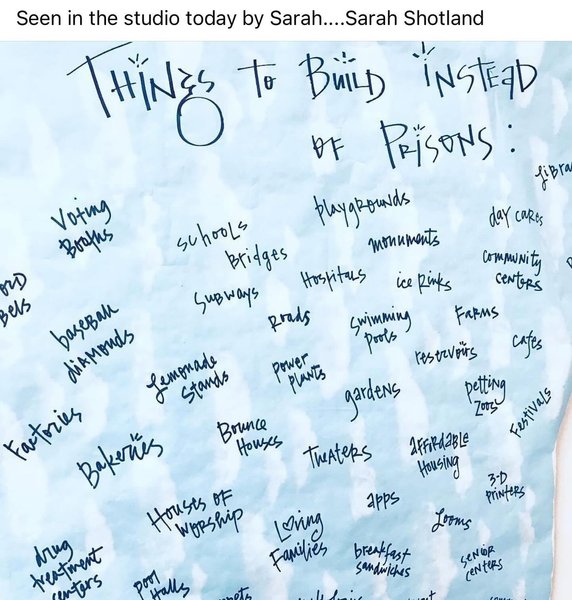 Seen in the studio today by Sarah....Sarah Shotland
THINGS TO BUILD INSTEAD
OF PRISONS:
Voting
Booths
schools
Bridges
playgrounds
monuments
day cares
community
centers
Subways
Hospitals
ice Rinks
baseball
diamonds
Roads
swimming
pools
Farms
reservoirs
cafes
Lemonade
Stands
power
plants
gardens
petting
Zoos
Festivals
Factories
Bakeries
Bounce
Houses
Theaters
Affordable
Housing
Houses of
Worship
Loving
Families
apps
Looms
3-D
printers
drug
treatment
centers
pool
halls
breakfast
sandwiches
senior
centers